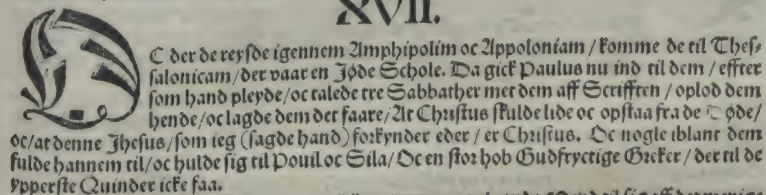 XVII.
OC der de reysde igennem Amphipolim oc Appoloniam / komme de til Thes⸗
salonicam / der vaar en Jøde Schole. Da gick Paulus nu ind til dem / effter
som hand pleyde / oc talede tre Sabbather met dem aff Scrifften / oplod dem
hende / oc lagde dem det faare / At Christus skulde lide oc opstaa fra de Døde /
oc / at denne Jhesus / som ieg (sagde hand) forkynder eder / er Christus. Oc nogle iblant dem
fulde hannem til / oc hulde sig til Pouil oc Sila / Oc en stor hob Gudfryctige Greker / der til de
ypperste Quinder icke faa.